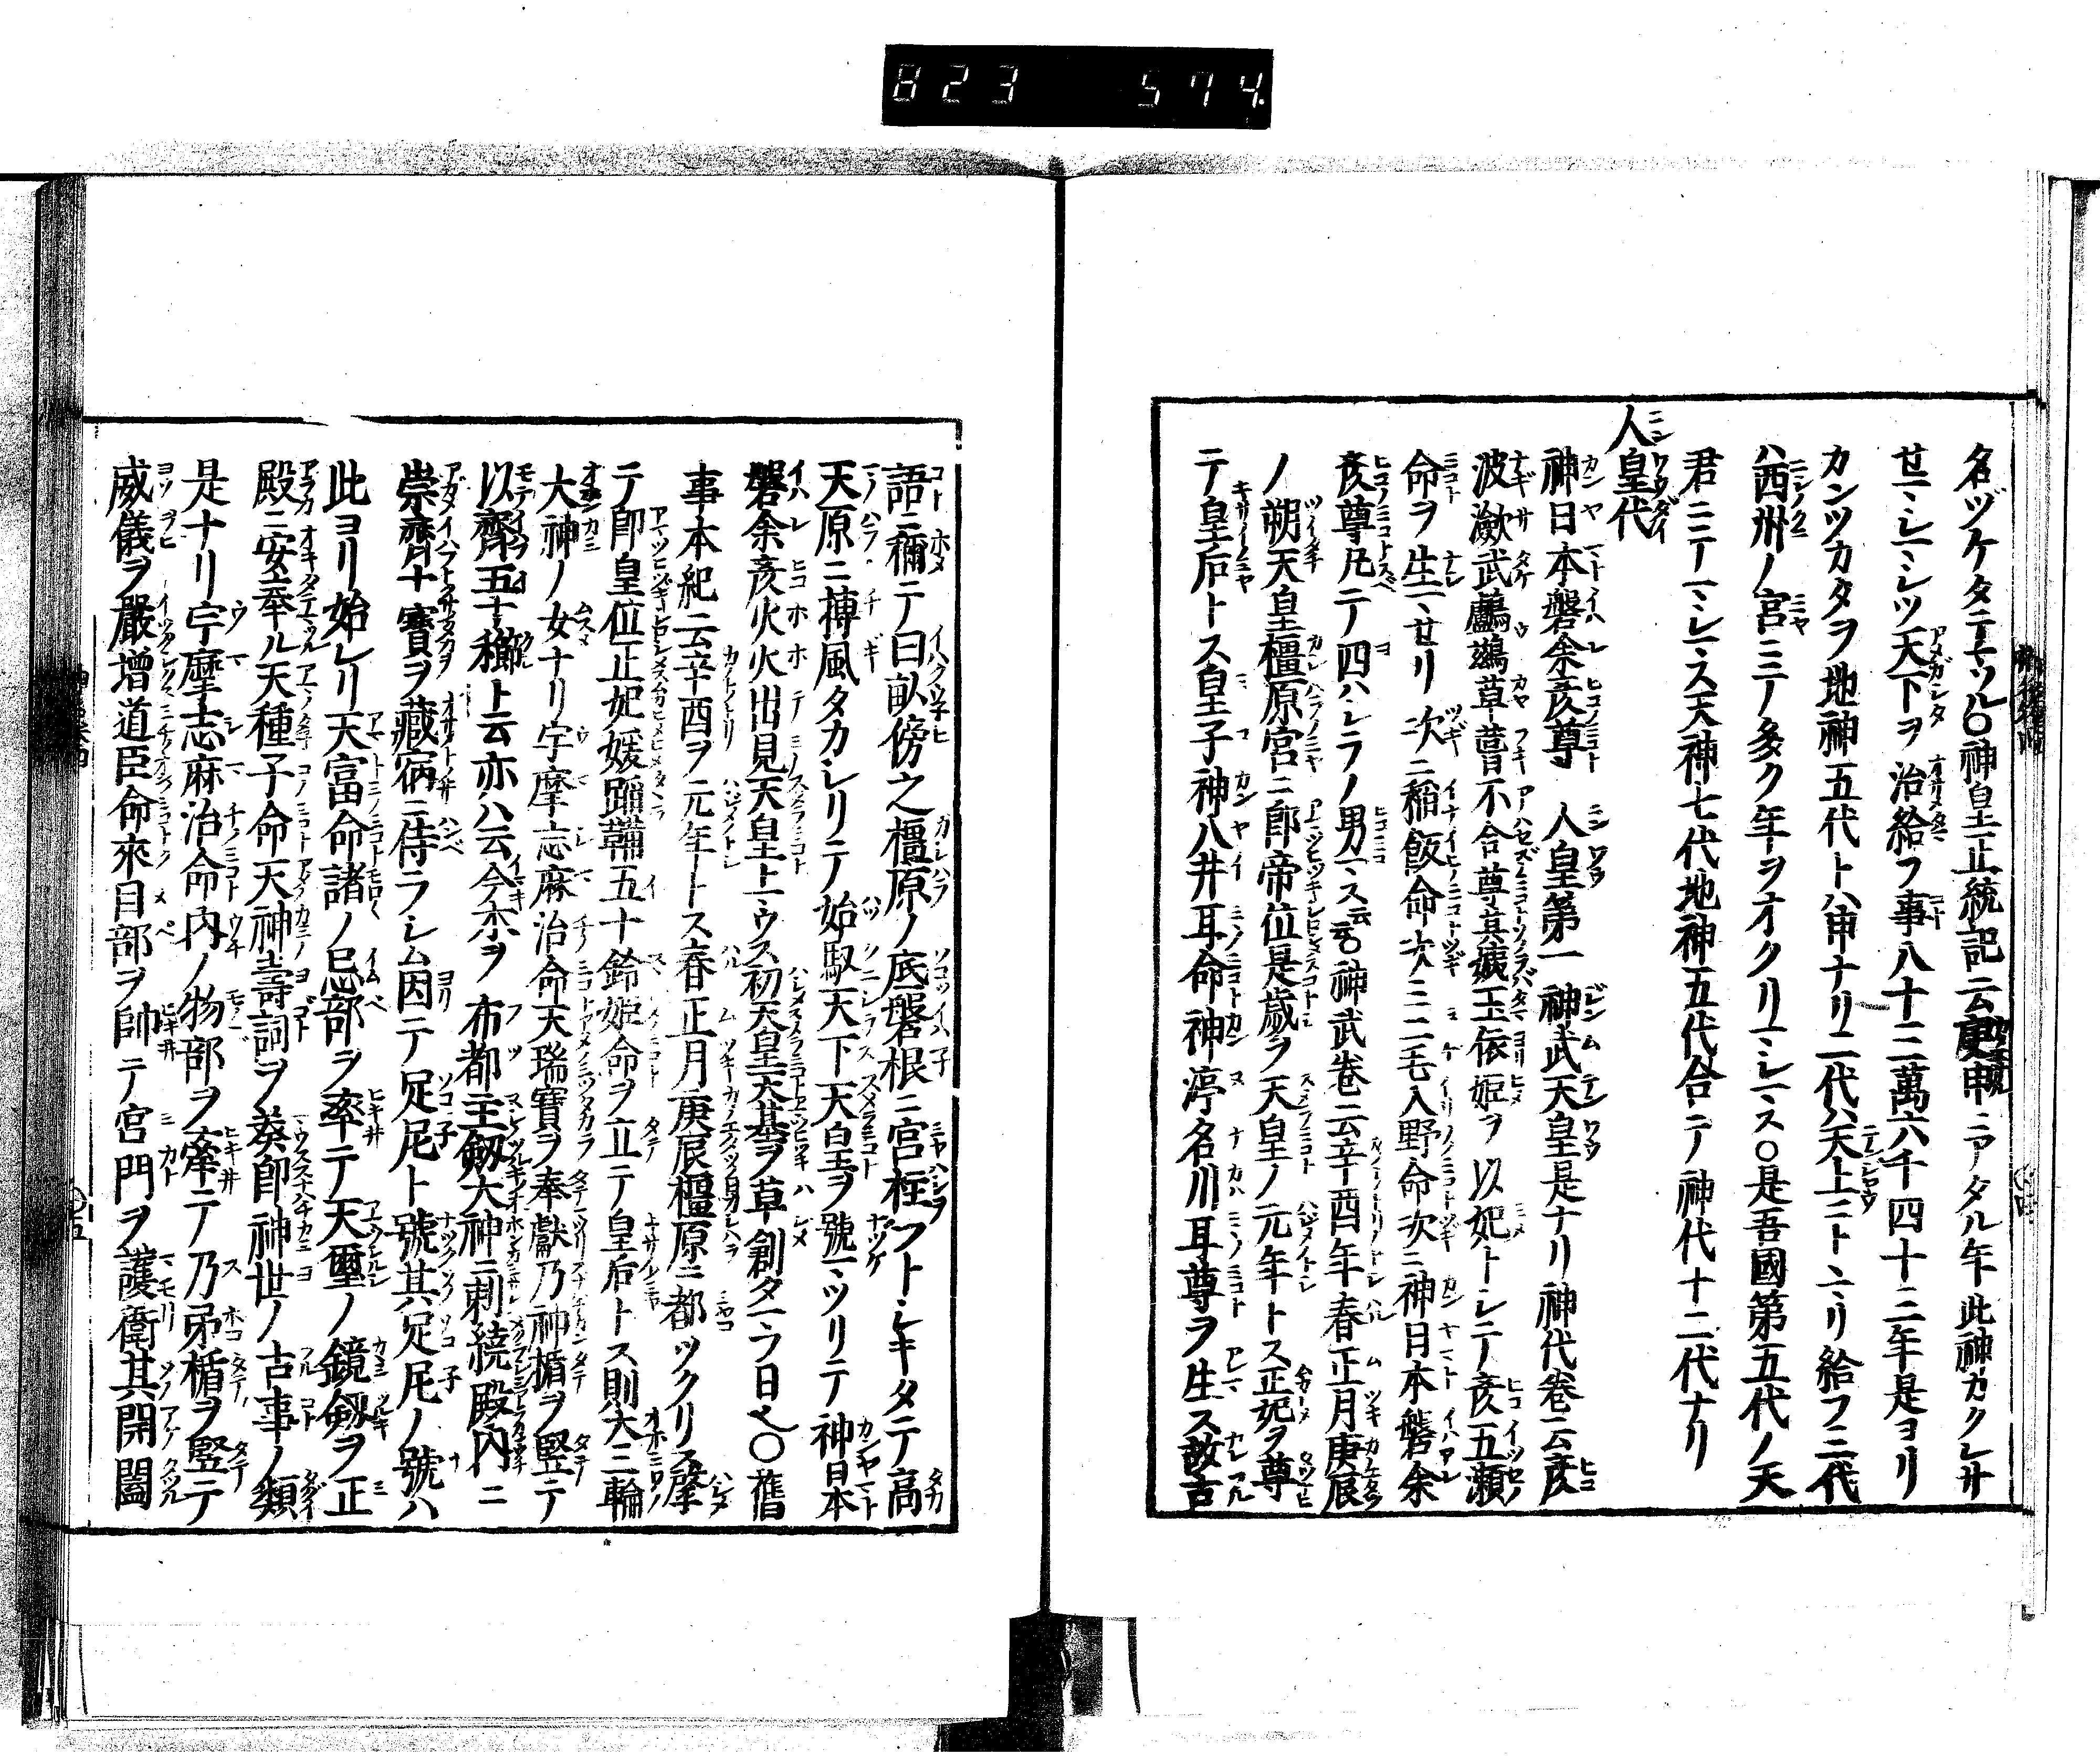 823 574
名ヅケタテマツル〇神皇正統記ニ云庚申ニアタル年此神カクレサ
せマシマシツ天下ヲ治給フ事八十三萬六千四十三年是ヨリ
カンツカタヲ地神五代トハ申ナリ二代ハ天上ニトヽマリ給フ三代
ハ西州ノ宮ニテ多ク年ヲオクリマシマス〇是吾國第五代ノ天
君ニテマシマス天神七代地神五代合テ神代十二代ナリ
人皇代
神日本磐余彦尊 人皇第一 神武天皇是ナリ神代巻云彦
波瀲武鸕鷀草葺不合尊其姨玉依姫ヲ以妃トシテ彦五瀬
命ヲ生マせリ次ニ稲飯命次ニ三毛入野命次ニ神日本磐余
彦尊凡テ四ハシラノ男マス云云神武巻云辛酉年春正月庚辰
ノ朔天皇橿原宮ニ即帝位是歳ヲ天皇ノ元年トス正妃ヲ尊
テ皇后トス皇子神八井耳命神渟名川耳尊ヲ生ス故古
語ニ稱テ曰畝傍之橿原ノ底磐根ニ宮柱フトシキタテ高
天原ニ搏風タカシリテ始馭天下天皇ヲ號マツリテ神日本
磐余彦火火出見天皇トマウス初天皇天基ヲ草創タマウ日也〇舊
事本紀ニ云辛酉ヲ元年トス春正月庚辰橿原ニ都ツクリス肇
テ即皇位正妃媛蹈鞴五十鈴姫命ヲ立テ皇后トス則大三輪
大神ノ女ナリ宇摩志麻治命天瑞寶ヲ奉獻乃神楯ヲ竪テ
以齋五十櫛ト云亦ハ云今木ヲ布都主劔大神ニ刺繞殿内ニ
崇齋十寶ヲ藏宿ニ侍ラシム因テ足尼ト號其足尼ノ號ハ
此ヨリ始レリ天富命諸ノ忌部ヲ率テ天璽ノ鏡劔ヲ正
殿ニ安奉ル天種子命天神壽詞ヲ奏即神世ノ古事ノ類
是ナリ宇摩志麻治命内ノ物部ヲ率テ乃矛楯ヲ竪テ
威儀ヲ嚴増道臣命來目部ヲ帥テ宮門ヲ護衛其開闔